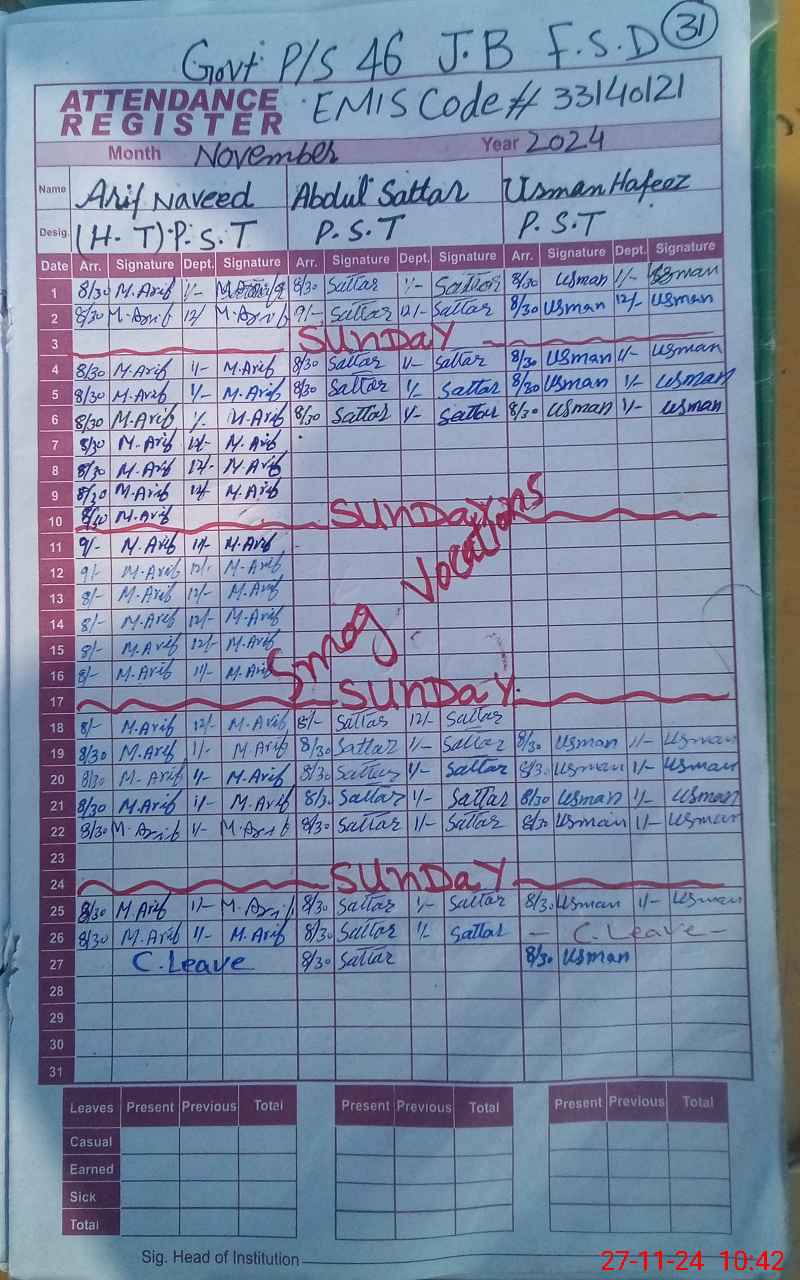 Govt P/S 46 J.B F.S.D 31
ATTENDANCE REGISTER EMIS Code # 33140121
Month November Year 2024
Name Arif Naveed Abdul Sattar Usman Hafeez
Desig. (H.T) P.S.T P.S.T P.S.T
Date Arr. Signature Dept. Signature Arr. Signature Dept. Signature Arr. Signature Dept. Signature
1 8/30 M.Arif 1/- 8/30 Sattar 1/- Sattar 8/30 Usman 1/- Usman
2 8/30 M.Arif 12/ M.Arif 9/- Sattar 12/- Sattar 8/30 Usman 12/- Usman
3 SUNDAY
4 8/30 M.Arif 1/- M.Arif 8/30 Sattar 1/- Sattar 8/30 Usman 1/- Usman
5 8/30 M.Arif 1/- M.Arif 8/30 Sattar 1/- Sattar 8/30 Usman 1/- Usman
6 8/30 M.Arif 1/. M.Arif 8/30 Sattar 1/- Sattar 8/30 Usman 1/- Usman
7 8/30 M.Arif 12/- M.Arif
8 8/30 M.Arif 12/- M.Arif
9 8/30 M.Arif 12/ M.Arif
10 M.Arif SUNDAY
Smog Vocations
11 9/- M.Arif 11/- M.Arif
12 9/- M.Arif 12/- M.Arif
13 8/- M.Arif 12/- M.Arif
14 8/- M.Arif 12/- M.Arif
15 8/- M.Arif 12/- M.Arif
16 8/- M.Arif 11/- M.Arif
17 SUNDAY
18 8/- M.Arif 12/- M.Arif 8/- Sattar 12/- Sattar
19 8/30 M.Arif 1/- M.Arif 8/30 Sattar 1/- Sattar 8/30 Usman 1/- Usman
20 8/30 M.Arif 1/- M.Arif 8/30 Sattar 1/- Sattar 8/3. Usman 1/- Usman
21 8/30 M.Arif 1/- M.Arif 8/3. Sattar 1/- Sattar 8/30 Usman 1/- Usman
22 8/30 M.Arif 1/- M.Arif 8/30 Sattar 1/- Sattar 8/30 Usman 1/- Usman
23
24 SUNDAY
25 8/30 M.Arif 1/- M.Arif 8/30 Sattar 1/- Sattar 8/3. Usman 1/- Usman
26 8/30 M.Arif 1/- M.Arif 8/30 Sattar 1/- Sattar - C.Leave -
27 C.Leave 8/30 Sattar 8/30 Usman
28
29
30
31
Leaves Present Previous Total Present Previous Total Present Previous Total
Casual
Earned
Sick
Total
Sig. Head of Institution
27-11-24 10:42